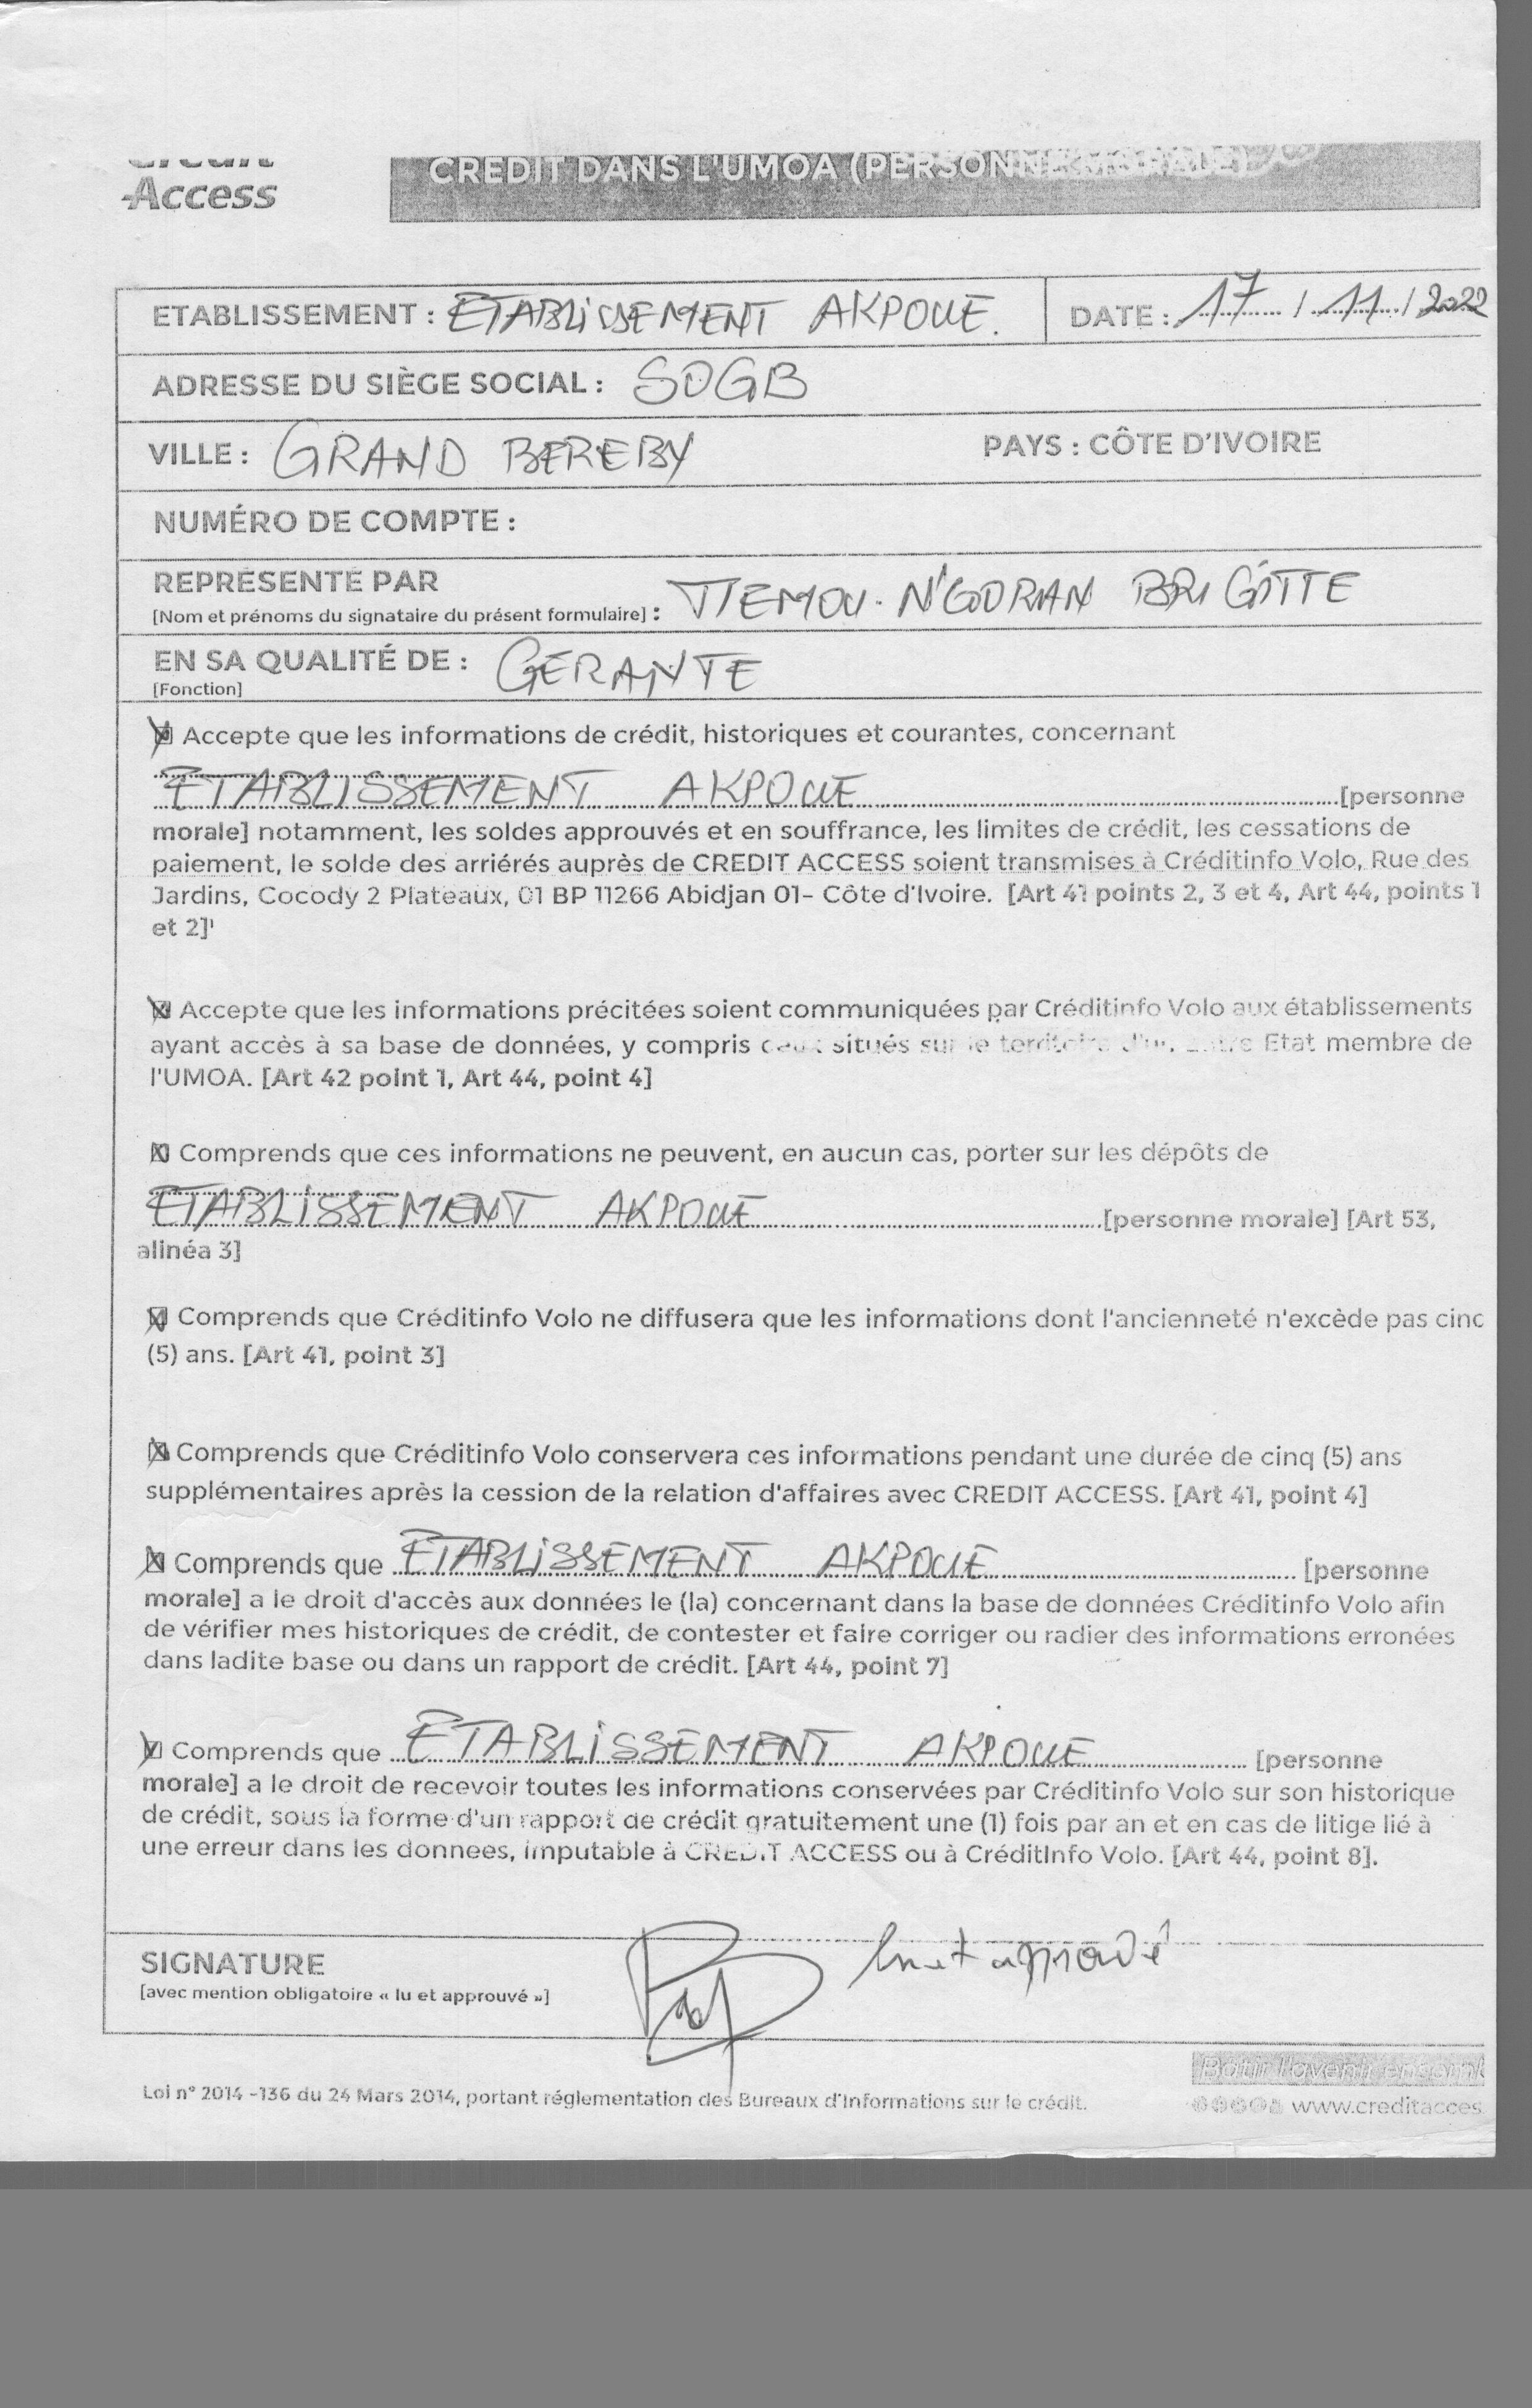 Access
CREDIT DANS L'UMOA (PERSONNE MORALE)
ETABLISSEMENT : ETABLISSEMENT AKPOUE. DATE : 17 / 11 / 2022
ADRESSE DU SIÈGE SOCIAL : SOGB
VILLE : GRAND BEREBY PAYS : CÔTE D'IVOIRE
NUMÉRO DE COMPTE :
REPRÉSENTÉ PAR
[Nom et prénoms du signataire du présent formulaire] : TIEMOU N'GORAN BRIGITTE
EN SA QUALITÉ DE : GERANTE
[Fonction]
Accepte que les informations de crédit, historiques et courantes, concernant
ETABLISSEMENT AKPOUE [personne
morale] notamment, les soldes approuvés et en souffrance, les limites de crédit, les cessations de
paiement, le solde des arriérés auprès de CREDIT ACCESS soient transmises à Créditinfo Volo, Rue des
Jardins, Cocody 2 Plateaux, 01 BP 11266 Abidjan 01- Côte d'Ivoire. [Art 41 points 2, 3 et 4, Art 44, points 1
et 2]¹
Accepte que les informations précitées soient communiquées par Créditinfo Volo aux établissements
ayant accès à sa base de données, y compris ceux situés sur le territoire d'un autre Etat membre de
l'UMOA. [Art 42 point 1, Art 44, point 4]
Comprends que ces informations ne peuvent, en aucun cas, porter sur les dépôts de
ETABLISSEMENT AKPOUE [personne morale] [Art 53,
alinéa 3]
Comprends que Créditinfo Volo ne diffusera que les informations dont l'ancienneté n'excède pas cinq
(5) ans. [Art 41, point 3]
Comprends que Créditinfo Volo conservera ces informations pendant une durée de cinq (5) ans
supplémentaires après la cession de la relation d'affaires avec CREDIT ACCESS. [Art 41, point 4]
Comprends que ETABLISSEMENT AKPOUE [personne
morale] a le droit d'accès aux données le (la) concernant dans la base de données Créditinfo Volo afin
de vérifier mes historiques de crédit, de contester et faire corriger ou radier des informations erronées
dans ladite base ou dans un rapport de crédit. [Art 44, point 7]
Comprends que ETABLISSEMENT AKPOUE [personne
morale] a le droit de recevoir toutes les informations conservées par Créditinfo Volo sur son historique
de crédit, sous la forme d'un rapport de crédit gratuitement une (1) fois par an et en cas de litige lié à
une erreur dans les donnees, imputable à CREDIT ACCESS ou à CréditInfo Volo. [Art 44, point 8].
SIGNATURE lu et approuvé
[avec mention obligatoire « lu et approuvé »]
Bâtir l'avenir ensemb
Loi n° 2014 -136 du 24 Mars 2014, portant réglementation des Bureaux d'Informations sur le crédit.
www.creditacces